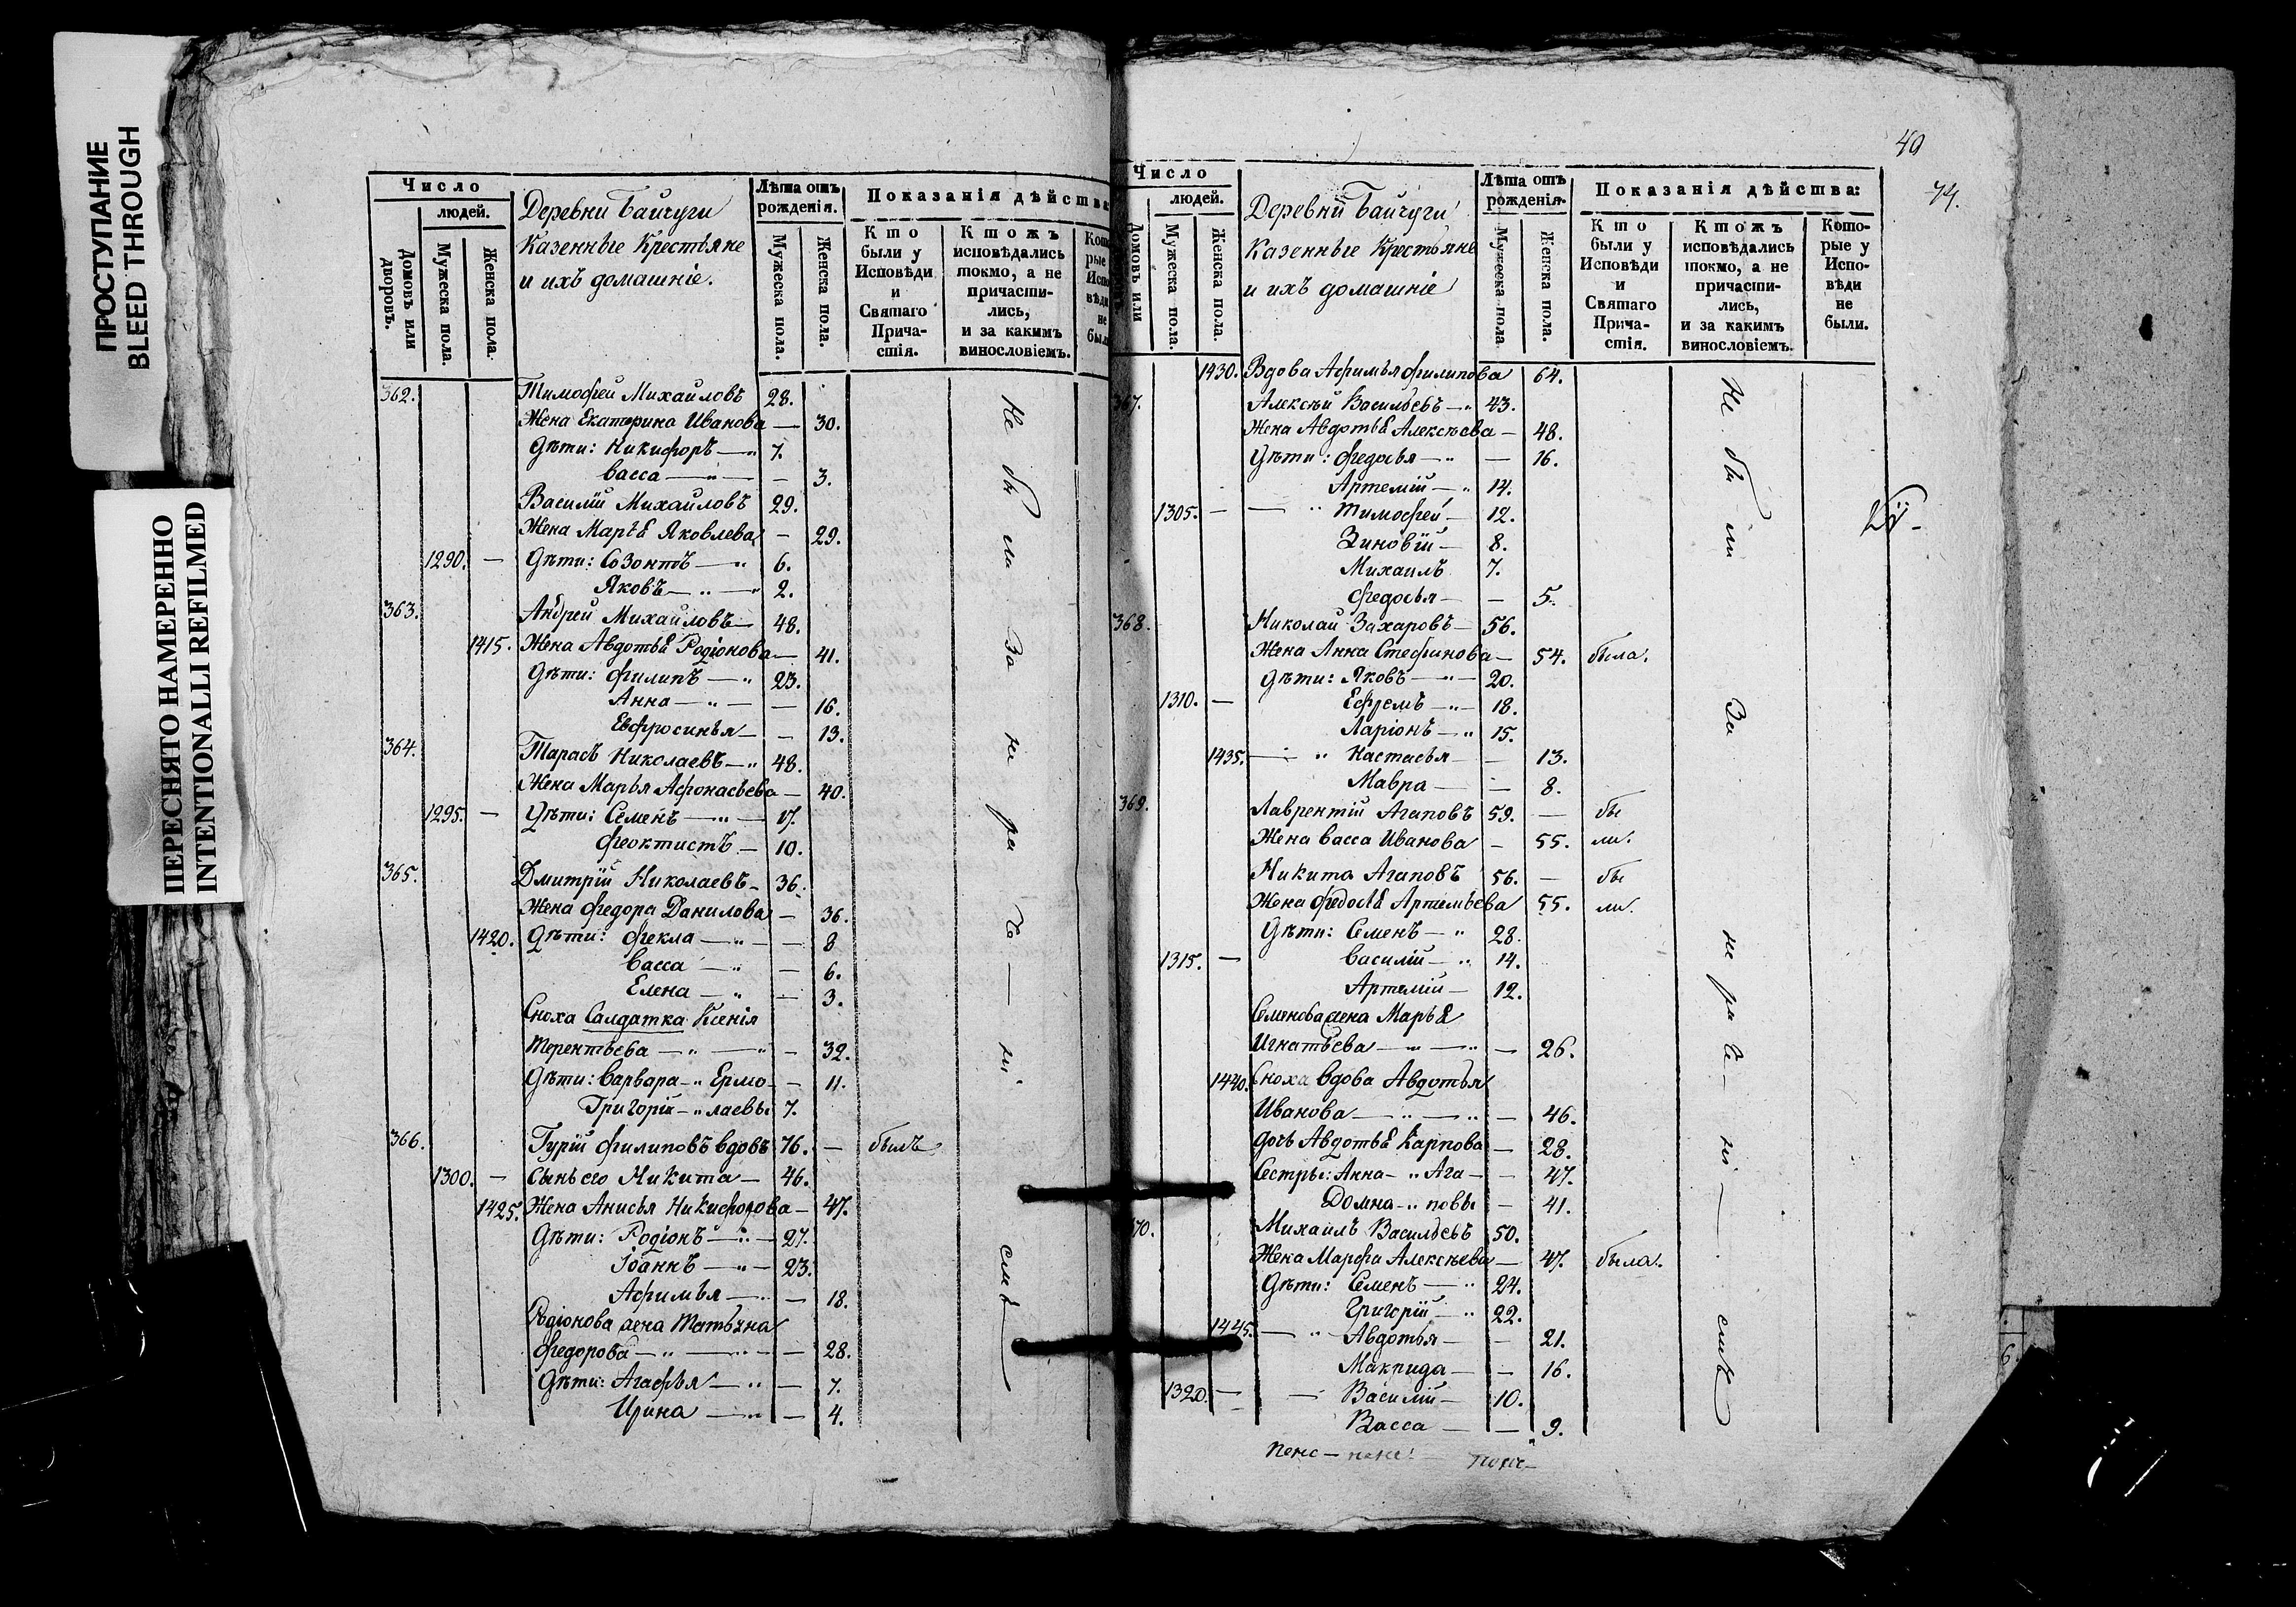 ПРОСТУПАНИЕ
BLEED THROUGH
ПЕРЕСНЯТО НАМЕРЕННО
INTENTIONALLI REFILMED
Число
людей.
Домовъ или дворовъ.
Мужеска пола.
Женска пола.
Деревни Байчуги
Казенные Крестьяне
и ихъ домашніе.
Лѣта отъ рожденія.
Мужеска пола.
Женска пола.
Показанія дѣйства
Кто были у Исповѣди и Святаго Причастія.
Ктожъ исповѣдались токмо, а не причастились, и за какимъ винословіемъ.
362. Тимофей Михайловъ 28.
Жена Екатерина Иванова — 30.
Дѣти: Никифоръ — 7.
Васса — — 3.
Василій Михайловъ 29.
Жена Марья Яковлева — 29.
1290. — Дѣти: Созонтъ — 6.
Яковъ — 2.
363. Андрей Михайловъ — 48.
1415. Жена Авдотья Родіонова — 41.
Дѣти: Филипъ — 23.
Анна — — 16.
Евфросинья — — 13.
364. Тарасъ Николаевъ — 48.
Жена Марья Афонасьева — 40.
1295. — Дѣти: Семенъ — 17.
Феоктистъ — 10.
365. Дмитрій Николаевъ — 36.
Жена Федора Данилова — 36.
1420. Дѣти: Фекла — — 8
Васса — — 6.
Елена — — 3.
Сноха Салдатка Ксенія
Терентьева — — 32.
Дѣти: Варвара — Ермо- — 11.
Григорій — лаевы 7.
366. Гурій Филиповъ вдовъ 76. — былъ
1300. — Сынъ его Никита — 46.
1425. Жена Анисья Никифорова — 47.
Дѣти: Родіонъ — 27.
Іоаннъ — 23.
Афимья — — 18.
Родіонова жена Татьяна
Федорова — — 28.
Дѣти: Агафья — — 7.
Ирина — — 4.
Не были за нерачені смъ
49
74.
Число
людей.
Домовъ или
Мужеска пола.
Женска пола.
Деревни Байчуги
Казенные Крестьяне
и ихъ домашніе
Лѣта отъ рожденія.
Мужеска пола
Женска пола.
Показанія дѣйства:
Кто были у Исповѣди и Святаго Причастія.
Ктожъ исповѣдались токмо, а не причастились, и за какимъ винословіемъ.
Которые у Исповѣди не были.
1430. Вдова Афимья Филипова 64.
367. Алексѣй Васильевъ — 43.
Жена Авдотья Алексѣева — 48.
Дѣти: Федосья — — 16.
Артемій — 14.
1305. — Тимофей — 12.
Зиновій — 8.
Михаилъ 7.
Федосья — — 5.
368. Николай Захаровъ — 56.
Жена Анна Стефанова — 54. была.
Дѣти: Яковъ — 20.
1310. — Ефремъ — 18.
Ларіонъ — 15.
1435. — Настасья — — 13.
Мавра — — 8.
369. Лаврентій Агаповъ 59. — бы
Жена Васса Иванова — 55. ли.
Никита Агаповъ 56. — бы
Жена Федосья Артемьева 55. ли.
Дѣти: Семенъ — 28.
1315. — Василій — 14.
Артемій — 12.
Семенова жена Марья
Игнатьева — — 26.
1440. Сноха вдова Авдотья
Иванова — — 46.
Дочь Авдотья Карпова — 28.
Сестры: Анна — Ага — 47.
Домна — повы — 41.
370. Михаилъ Васильевъ 50.
Жена Марфа Алексѣева — 47. была.
Дѣти: Семенъ — 24.
Григорій — 22.
1445. — Авдотья — — 21.
Макрида — — 16.
1320. — Василій — 10.
Васса — — 9.
Не были за нерачені смъ